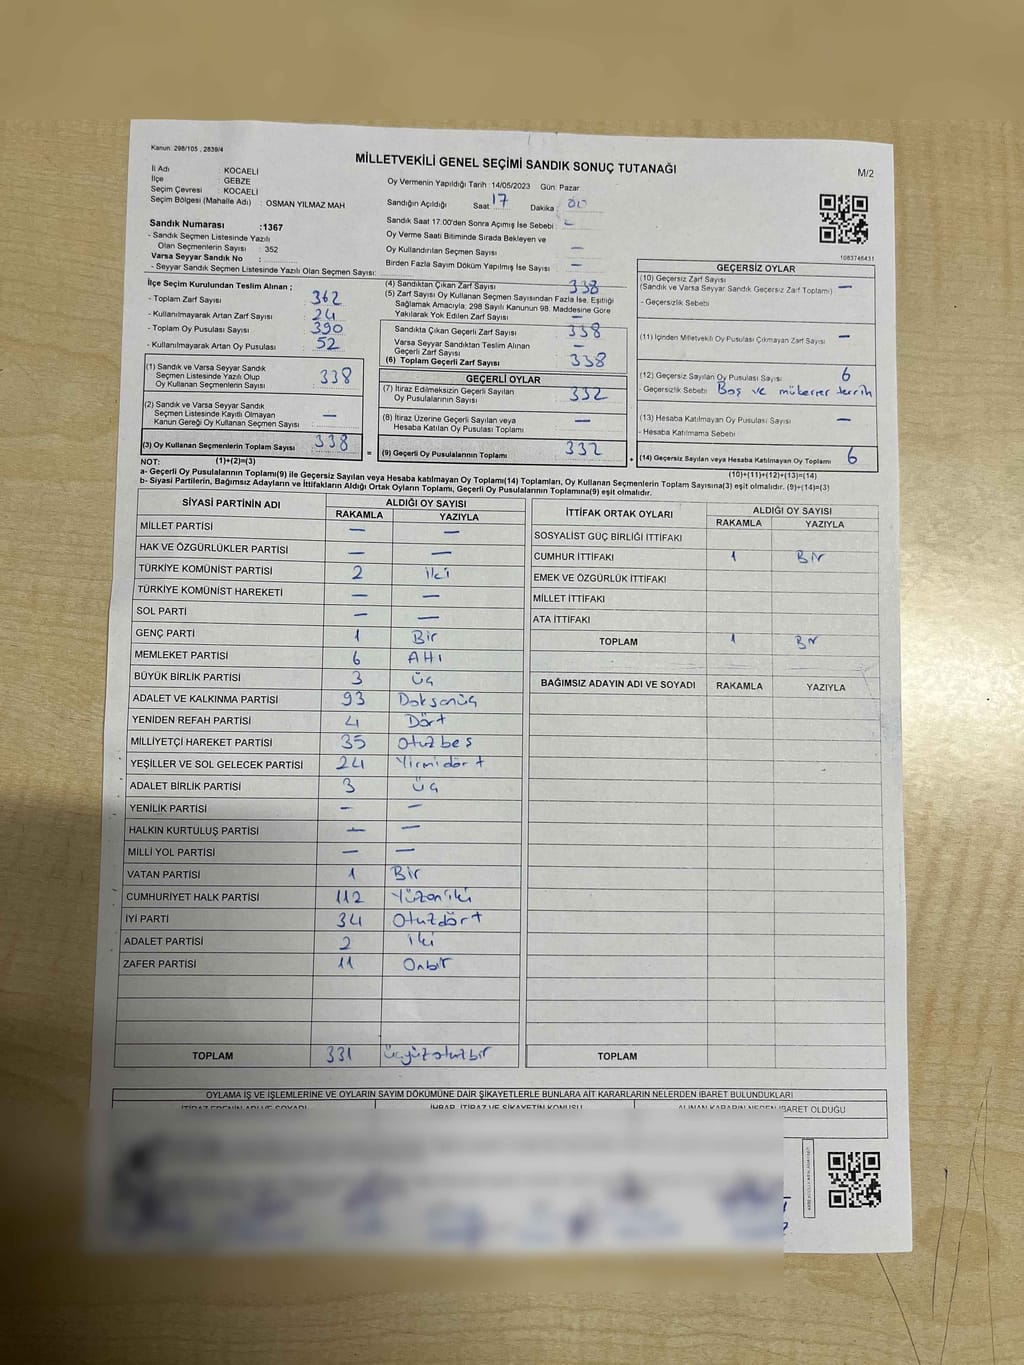 Kanun: 298/105 , 2839/4
MİLLETVEKİLİ GENEL SEÇİMİ SANDIK SONUÇ TUTANAĞI
M/2
İl Adı : KOCAELİ
İlçe : GEBZE
Seçim Çevresi : KOCAELİ
Seçim Bölgesi (Mahalle Adı) : OSMAN YILMAZ MAH
Sandık Numarası :1367
- Sandık Seçmen Listesinde Yazılı
Olan Seçmenlerin Sayısı : 352
Varsa Seyyar Sandık No :
- Seyyar Sandık Seçmen Listesinde Yazılı Olan Seçmen Sayısı:
Oy Vermenin Yapıldığı Tarih :14/05/2023 Gün: Pazar
Sandığın Açıldığı Saat 17 Dakika 00
Sandık Saat 17:00'den Sonra Açımış İse Sebebi : –
Oy Verme Saati Bitiminde Sırada Bekleyen ve
Oy Kullandırılan Seçmen Sayısı –
Birden Fazla Sayım Döküm Yapılmış İse Sayısı –
1083746431
İlçe Seçim Kurulundan Teslim Alınan ;
- Toplam Zarf Sayısı 362
- Kullanılmayarak Artan Zarf Sayısı 24
- Toplam Oy Pusulası Sayısı 390
- Kullanılmayarak Artan Oy Pusulası 52
(1) Sandık ve Varsa Seyyar Sandık
Seçmen Listesinde Yazılı Olup
Oy Kullanan Seçmenlerin Sayısı 338
(2) Sandık ve Varsa Seyyar Sandık
Seçmen Listesinde Kayıtlı Olmayan
Kanun Gereği Oy Kullanan Seçmen Sayısı –
(3) Oy Kullanan Seçmenlerin Toplam Sayısı 338
(1)+(2)=(3)
(4) Sandıktan Çıkan Zarf Sayısı 338
(5) Zarf Sayısı Oy Kullanan Seçmen Sayısından Fazla İse, Eşitliği
Sağlamak Amacıyla, 298 Sayılı Kanunun 98. Maddesine Göre
Yakılarak Yok Edilen Zarf Sayısı –
Sandıkta Çıkan Geçerli Zarf Sayısı 338
Varsa Seyyar Sandıktan Teslim Alınan
Geçerli Zarf Sayısı –
(6) Toplam Geçerli Zarf Sayısı 338
GEÇERLİ OYLAR
(7) İtiraz Edilmeksizin Geçerli Sayılan
Oy Pusulalarının Sayısı 332
(8) İtiraz Üzerine Geçerli Sayılan veya
Hesaba Katılan Oy Pusulası Toplamı –
= (9) Geçerli Oy Pusulalarının Toplamı 332 +
GEÇERSİZ OYLAR
(10) Geçersiz Zarf Sayısı
(Sandık ve Varsa Seyyar Sandık Geçersiz Zarf Toplamı) –
- Geçersizlik Sebebi
(11) İçinden Milletvekili Oy Pusulası Çıkmayan Zarf Sayısı –
(12) Geçersiz Sayılan Oy Pusulası Sayısı 6
- Geçersizlik Sebebi Boş ve mükerrer tercih
(13) Hesaba Katılmayan Oy Pusulası Sayısı –
- Hesaba Katılmama Sebebi
(14) Geçersiz Sayılan veya Hesaba Katılmayan Oy Toplamı 6
(10)+(11)+(12)+(13)=(14)
NOT:
a- Geçerli Oy Pusulalarının Toplamı(9) ile Geçersiz Sayılan veya Hesaba katılmayan Oy Toplamı(14) Toplamları, Oy Kullanan Seçmenlerin Toplam Sayısına(3) eşit olmalıdır. (9)+(14)=(3)
b- Siyasi Partilerin, Bağımsız Adayların ve İttifakların Aldığı Ortak Oyların Toplamı, Geçerli Oy Pusulalarının Toplamına(9) eşit olmalıdır.
SİYASİ PARTİNİN ADI ALDIĞI OY SAYISI
RAKAMLA YAZIYLA
MİLLET PARTİSİ – –
HAK VE ÖZGÜRLÜKLER PARTİSİ – –
TÜRKİYE KOMÜNİST PARTİSİ 2 iki
TÜRKİYE KOMÜNİST HAREKETİ – –
SOL PARTİ – –
GENÇ PARTİ 1 Bir
MEMLEKET PARTİSİ 6 Altı
BÜYÜK BİRLİK PARTİSİ 3 üç
ADALET VE KALKINMA PARTİSİ 93 Doksanüç
YENİDEN REFAH PARTİSİ 4 Dört
MİLLİYETÇİ HAREKET PARTİSİ 35 otuzbeş
YEŞİLLER VE SOL GELECEK PARTİSİ 24 Yirmidört
ADALET BİRLİK PARTİSİ 3 üç
YENİLİK PARTİSİ – –
HALKIN KURTULUŞ PARTİSİ – –
MİLLİ YOL PARTİSİ – –
VATAN PARTİSİ 1 Bir
CUMHURİYET HALK PARTİSİ 112 Yüzoniki
İYİ PARTİ 34 Otuzdört
ADALET PARTİSİ 2 iki
ZAFER PARTİSİ 11 Onbir
TOPLAM 331 üçyüzotuzbir
İTTİFAK ORTAK OYLARI ALDIĞI OY SAYISI
RAKAMLA YAZIYLA
SOSYALİST GÜÇ BİRLİĞİ İTTİFAKI
CUMHUR İTTİFAKI 1 Bir
EMEK VE ÖZGÜRLÜK İTTİFAKI
MİLLET İTTİFAKI
ATA İTTİFAKI
TOPLAM 1 Bir
BAĞIMSIZ ADAYIN ADI VE SOYADI RAKAMLA YAZIYLA
TOPLAM
OYLAMA İŞ VE İŞLEMLERİNE VE OYLARIN SAYIM DÖKÜMÜNE DAİR ŞİKAYETLERLE BUNLARA AİT KARARLARIN NELERDEN İBARET BULUNDUKLARI
İTİRAZ EDENİN ADI VE SOYADI İHBAR, İTİRAZ VE ŞİKAYETİN KONUSU ALINAN KARARIN NEDEN İBARET OLDUĞU